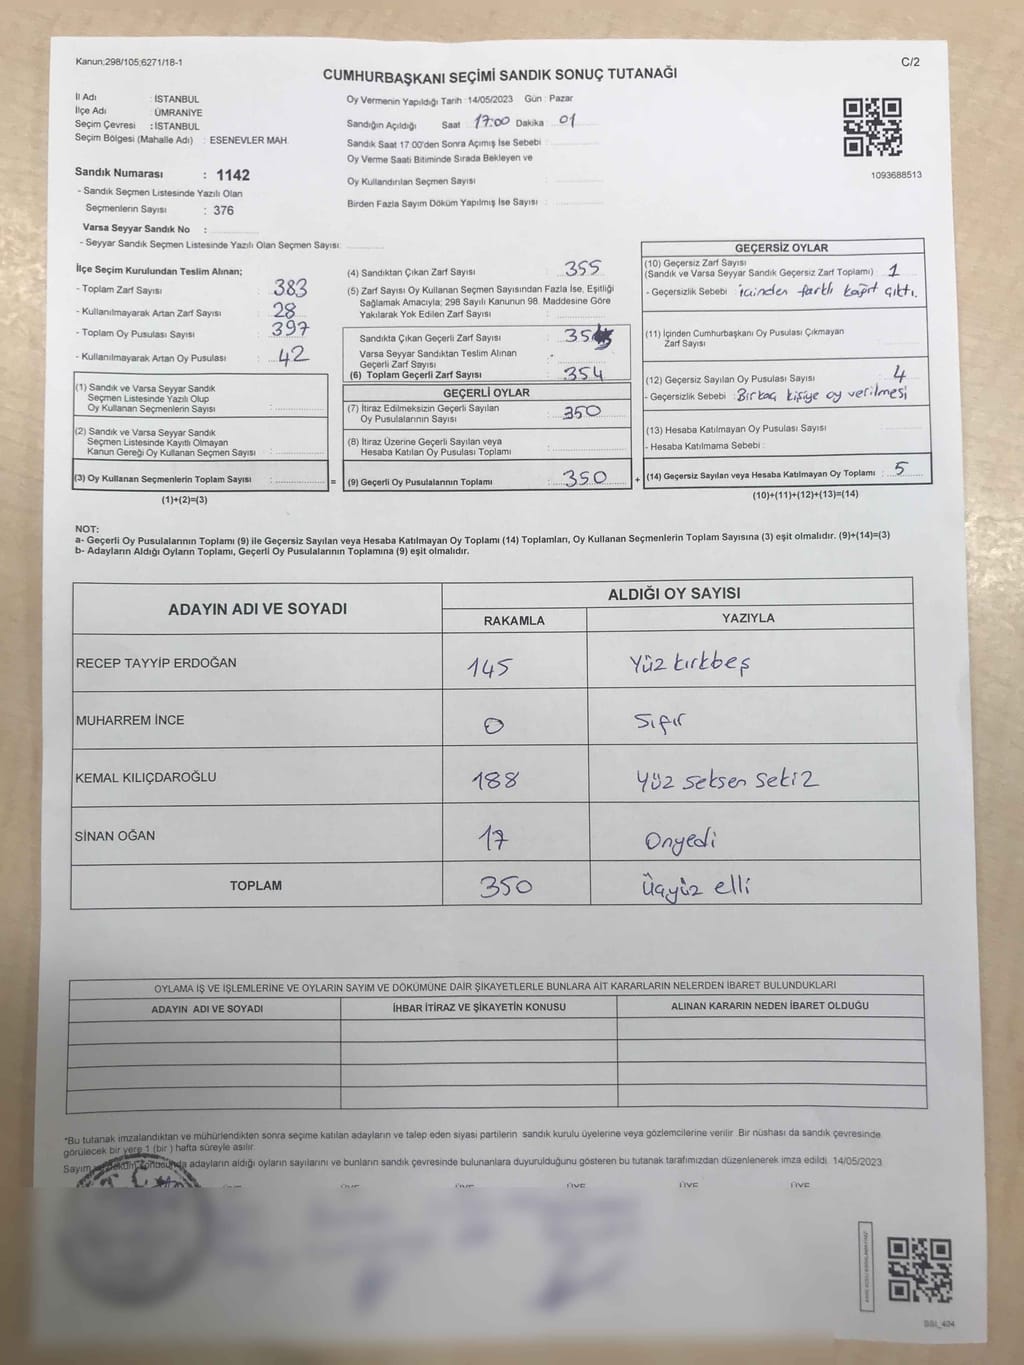 Kanun:298/105;6271/18-1
C/2
CUMHURBAŞKANI SEÇİMİ SANDIK SONUÇ TUTANAĞI
İl Adı : İSTANBUL
İlçe Adı : ÜMRANİYE
Seçim Çevresi : İSTANBUL
Seçim Bölgesi (Mahalle Adı) : ESENEVLER MAH.
Sandık Numarası : 1142
- Sandık Seçmen Listesinde Yazılı Olan
Seçmenlerin Sayısı : 376
Varsa Seyyar Sandık No :
- Seyyar Sandık Seçmen Listesinde Yazılı Olan Seçmen Sayısı:
Oy Vermenin Yapıldığı Tarih : 14/05/2023 Gün : Pazar
Sandığın Açıldığı Saat : 17:00 Dakika : 01
Sandık Saat 17:00'den Sonra Açımış İse Sebebi :
Oy Verme Saati Bitiminde Sırada Bekleyen ve
Oy Kullandırılan Seçmen Sayısı :
Birden Fazla Sayım Döküm Yapılmış İse Sayısı :
1093688513
İlçe Seçim Kurulundan Teslim Alınan;
- Toplam Zarf Sayısı : 383
- Kullanılmayarak Artan Zarf Sayısı : 28
- Toplam Oy Pusulası Sayısı : 397
- Kullanılmayarak Artan Oy Pusulası : 42
(1) Sandık ve Varsa Seyyar Sandık
Seçmen Listesinde Yazılı Olup
Oy Kullanan Seçmenlerin Sayısı :
(2) Sandık ve Varsa Seyyar Sandık
Seçmen Listesinde Kayıtlı Olmayan
Kanun Gereği Oy Kullanan Seçmen Sayısı :
(3) Oy Kullanan Seçmenlerin Toplam Sayısı :
(1)+(2)=(3)
(4) Sandıktan Çıkan Zarf Sayısı : 355
(5) Zarf Sayısı Oy Kullanan Seçmen Sayısından Fazla İse, Eşitliği
Sağlamak Amacıyla; 298 Sayılı Kanunun 98. Maddesine Göre
Yakılarak Yok Edilen Zarf Sayısı :
Sandıkta Çıkan Geçerli Zarf Sayısı : 35
Varsa Seyyar Sandıktan Teslim Alınan
Geçerli Zarf Sayısı
(6) Toplam Geçerli Zarf Sayısı : 354
GEÇERLİ OYLAR
(7) İtiraz Edilmeksizin Geçerli Sayılan
Oy Pusulalarının Sayısı : 350
(8) İtiraz Üzerine Geçerli Sayılan veya
Hesaba Katılan Oy Pusulası Toplamı :
= (9) Geçerli Oy Pusulalarının Toplamı : 350 +
GEÇERSİZ OYLAR
(10) Geçersiz Zarf Sayısı
(Sandık ve Varsa Seyyar Sandık Geçersiz Zarf Toplamı) : 1
- Geçersizlik Sebebi : içinden farklı kağıt çıktı.
(11) İçinden Cumhurbaşkanı Oy Pusulası Çıkmayan
Zarf Sayısı :
(12) Geçersiz Sayılan Oy Pusulası Sayısı : 4
- Geçersizlik Sebebi : Birkaç kişiye oy verilmesi
(13) Hesaba Katılmayan Oy Pusulası Sayısı :
- Hesaba Katılmama Sebebi :
(14) Geçersiz Sayılan veya Hesaba Katılmayan Oy Toplamı : 5
(10)+(11)+(12)+(13)=(14)
NOT:
a- Geçerli Oy Pusulalarının Toplamı (9) ile Geçersiz Sayılan veya Hesaba Katılmayan Oy Toplamı (14) Toplamları, Oy Kullanan Seçmenlerin Toplam Sayısına (3) eşit olmalıdır. (9)+(14)=(3)
b- Adayların Aldığı Oyların Toplamı, Geçerli Oy Pusulalarının Toplamına (9) eşit olmalıdır.
ADAYIN ADI VE SOYADI
ALDIĞI OY SAYISI
RAKAMLA YAZIYLA
RECEP TAYYİP ERDOĞAN 145 Yüz kırkbeş
MUHARREM İNCE 0 Sıfır
KEMAL KILIÇDAROĞLU 188 Yüz seksen sekiz
SİNAN OĞAN 17 Onyedi
TOPLAM 350 Üçyüz elli
OYLAMA İŞ VE İŞLEMLERİNE VE OYLARIN SAYIM VE DÖKÜMÜNE DAİR ŞİKAYETLERLE BUNLARA AİT KARARLARIN NELERDEN İBARET BULUNDUKLARI
ADAYIN ADI VE SOYADI İHBAR İTİRAZ VE ŞİKAYETİN KONUSU ALINAN KARARIN NEDEN İBARET OLDUĞU
*Bu tutanak imzalandıktan ve mühürlendikten sonra seçime katılan adayların ve talep eden siyasi partilerin sandık kurulu üyelerine veya gözlemcilerine verilir. Bir nüshası da sandık çevresinde
görülecek bir yere 1 (bir ) hafta süreyle asılır.
Sayım adayların aldığı oyların sayılarını ve bunların sandık çevresinde bulunanlara duyurulduğunu gösteren bu tutanak tarafımızdan düzenlenerek imza edildi. 14/05/2023
ÜYE ÜYE ÜYE ÜYE ÜYE